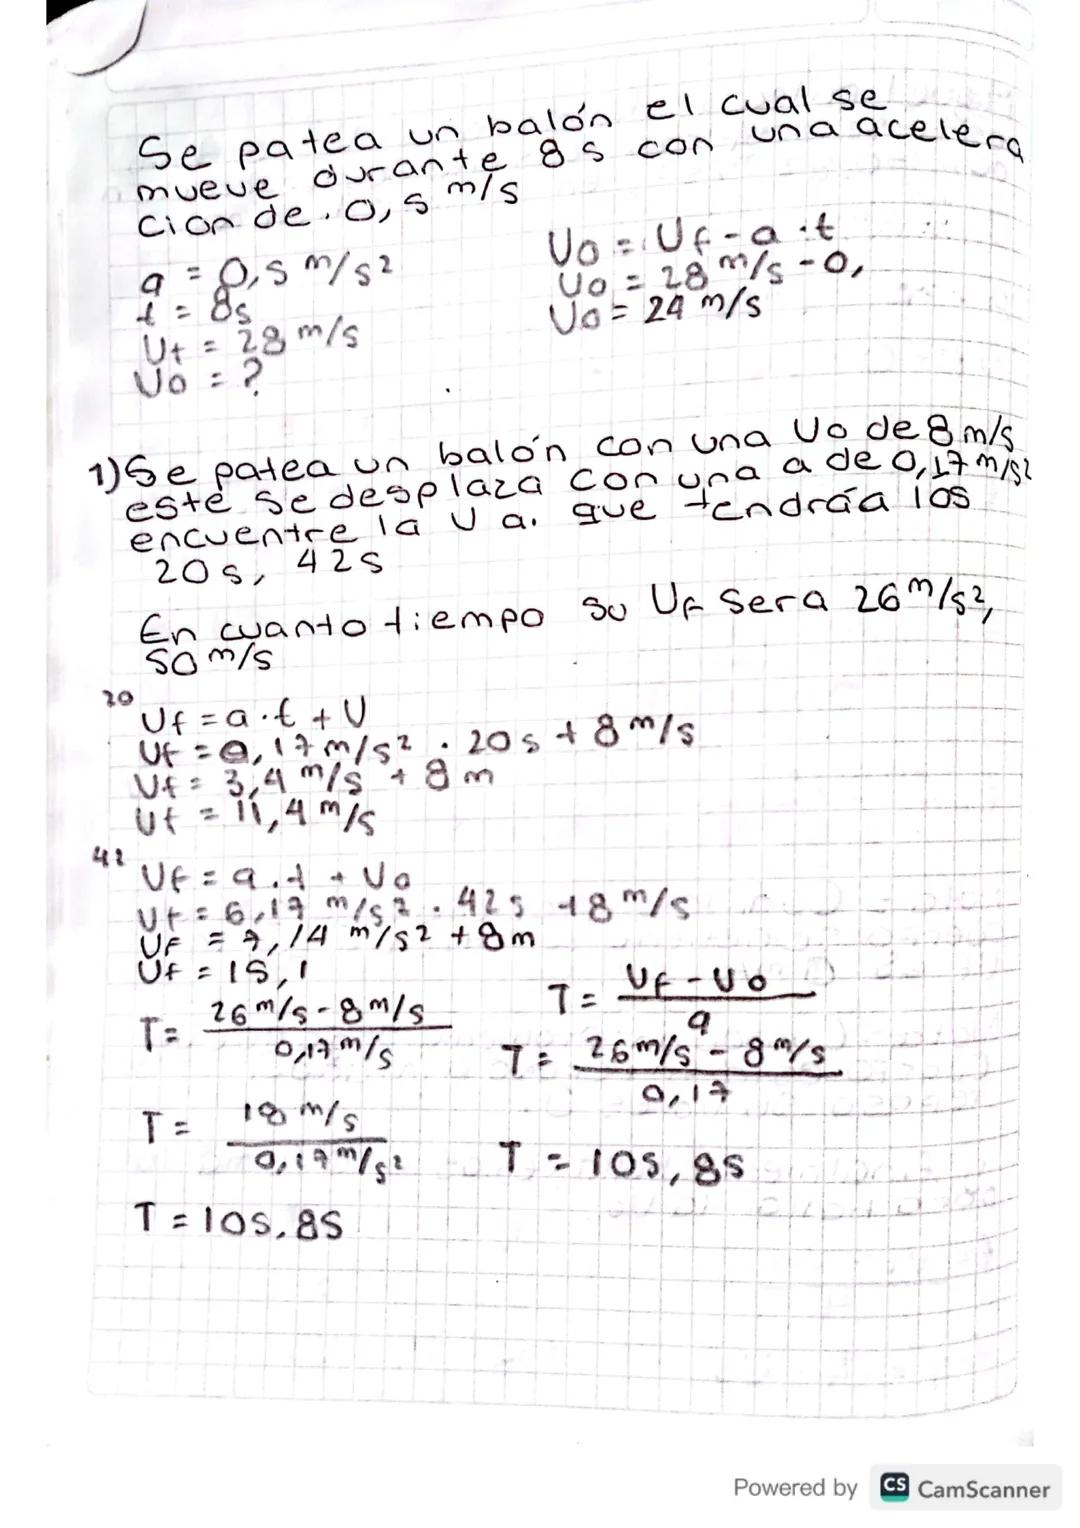 Se patea un balón el cual se
mueve durante 8s con una acelera
cion de. 0,5 m/s
a = 0,5 m/s²
t = 8s
Uf = 28 m/s
Uo = ?
Uo = Uf - a · t
Uo = 28 m/s - 0,
Uo = 24 m/s
1) Se patea un balón con una Uo de 8 m/s
este se desplaza con una a de 0,17 m/s²
encuentre la U a. que tendráa los
20s, 42s
En cuanto tiempo su Uf sera 26 m/s²,
50 m/s
20
Uf = a · t + U
Uf = 0,17 m/s² . 20s + 8 m/s
Uf = 3,4 m/s + 8 m
Uf = 11,4 m/s
42
Uf = a . t + Uo
Uf = 6,17 m/s² . 42s + 8 m/s
Uf = 7,14 m/s² + 8m
Uf = 15,1
T = 26 m/s - 8 m/s
0,17 m/s
T = 18 m/s
0,17 m/s²
T = 105,8s
T = Uf - Uo
a
T = 26 m/s - 8 m/s
0,17
T = 105,8s
Powered by CS CamScanner